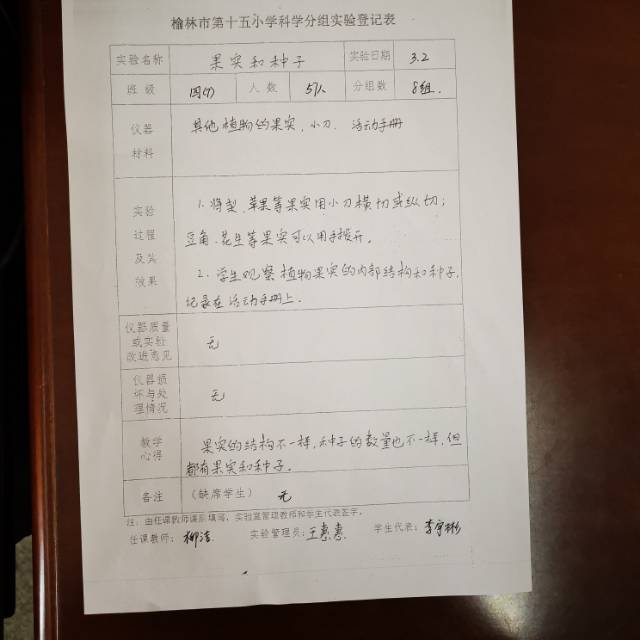 榆林市第十五小学科学分组实验登记表
实验名称 果实和种子 实验日期 3.2
班级 四(7) 人数 57人 分组数 8组.
仪器材料 其他植物的果实、小刀、活动手册
实验过程及头效果
1.将梨、苹果等果实用小刀横切或纵切;
豆角、花生等果实可以用手掰开。
2.学生观察植物果实的内部结构和种子,
记录在活动手册上。
仪器质量或实验改进意见 无
仪器损坏与处理情况 无
教学心得 果实的结构不一样,种子的数量也不一样,但
都有果实和种子.
备注 (缺席学生) 无
注:由任课教师课前填写,实验室管理教师和学生代表签字,
任课教师: 柳洁 实验管理员: 王惠惠 学生代表: 李宇彬